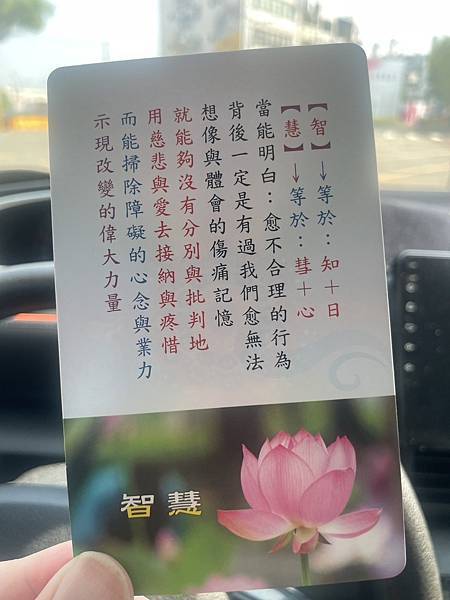 【智】→等於：知＋日
【慧】→等於：彗＋心
當能明白：愈不合理的行為
背後一定是有過我們愈無法
想像與體會的傷痛記憶
就能夠沒有分別與批判地
用慈悲與愛去接納與疼惜
而能掃除障礙的心念與業力
示現改變的偉大力量
智慧